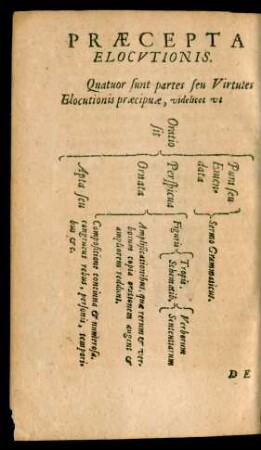 PRÆCEPTA
ELOCVTIONIS.
Quatuor sunt partes seu Virtutes
Elocutionis præcipuæ, videlicet vt
Oratio
sit
Pura seu
Emen-
data
Sermo Grammaticus.
Perspicua
Ornata
Figuris
Tropis,
Schematib.
Verborum
Sententiarum
Amplificationibus, quæ rerum & ver-
borum copia orationem augent &
ampliorem reddunt.
Compositione concinna & numerosa.
Apta seu
congruens rebus, personis, tempori-
bus &c.
DE